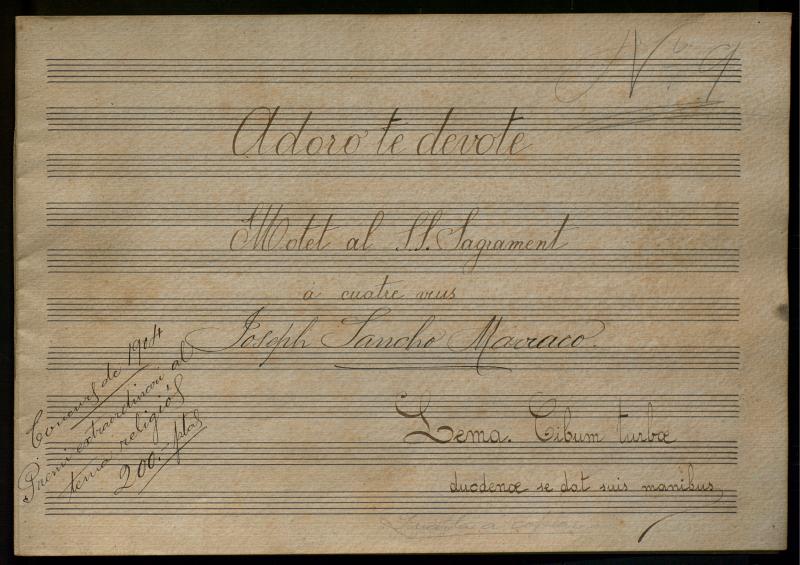 Nº 9
Adoro te devote
Motet al S.S. Sagrament
á cuatre veus
Joseph Sancho Marraco.
Concurs de 1904
Premi extraordinari al
tema religiós
200.-ptas
Lema. Cibum turbæ
duodenæ se dat suis manibus